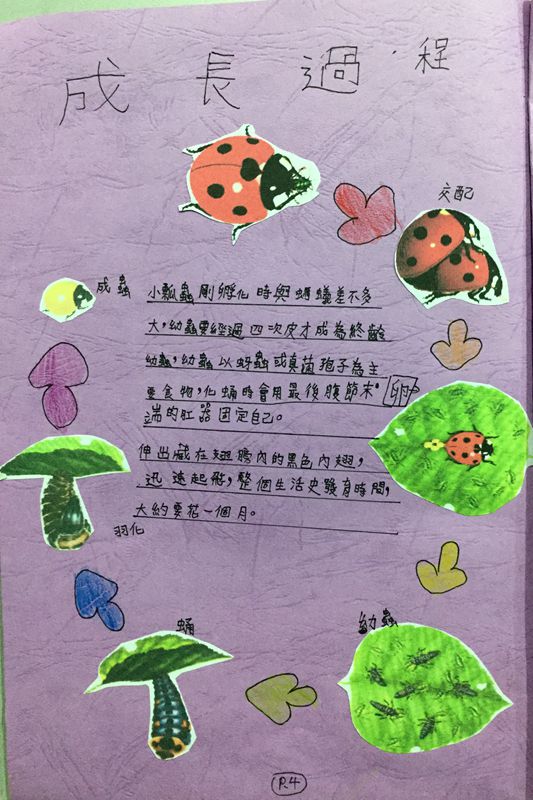 成長過程
交配
成蟲
小瓢蟲剛孵化時與螞蟻差不多
大，幼蟲要經過四次皮才成為終齡
幼蟲，幼蟲以蚜蟲或真菌孢子為主
要食物，化蛹時會用最後腹節末
端的肛器固定自己。
卵
伸出藏在翅膀內的黑色內翅，
迅速起飛，整個生活史發育時間，
大約要花一個月。
羽化
蛹
幼蟲
P.4